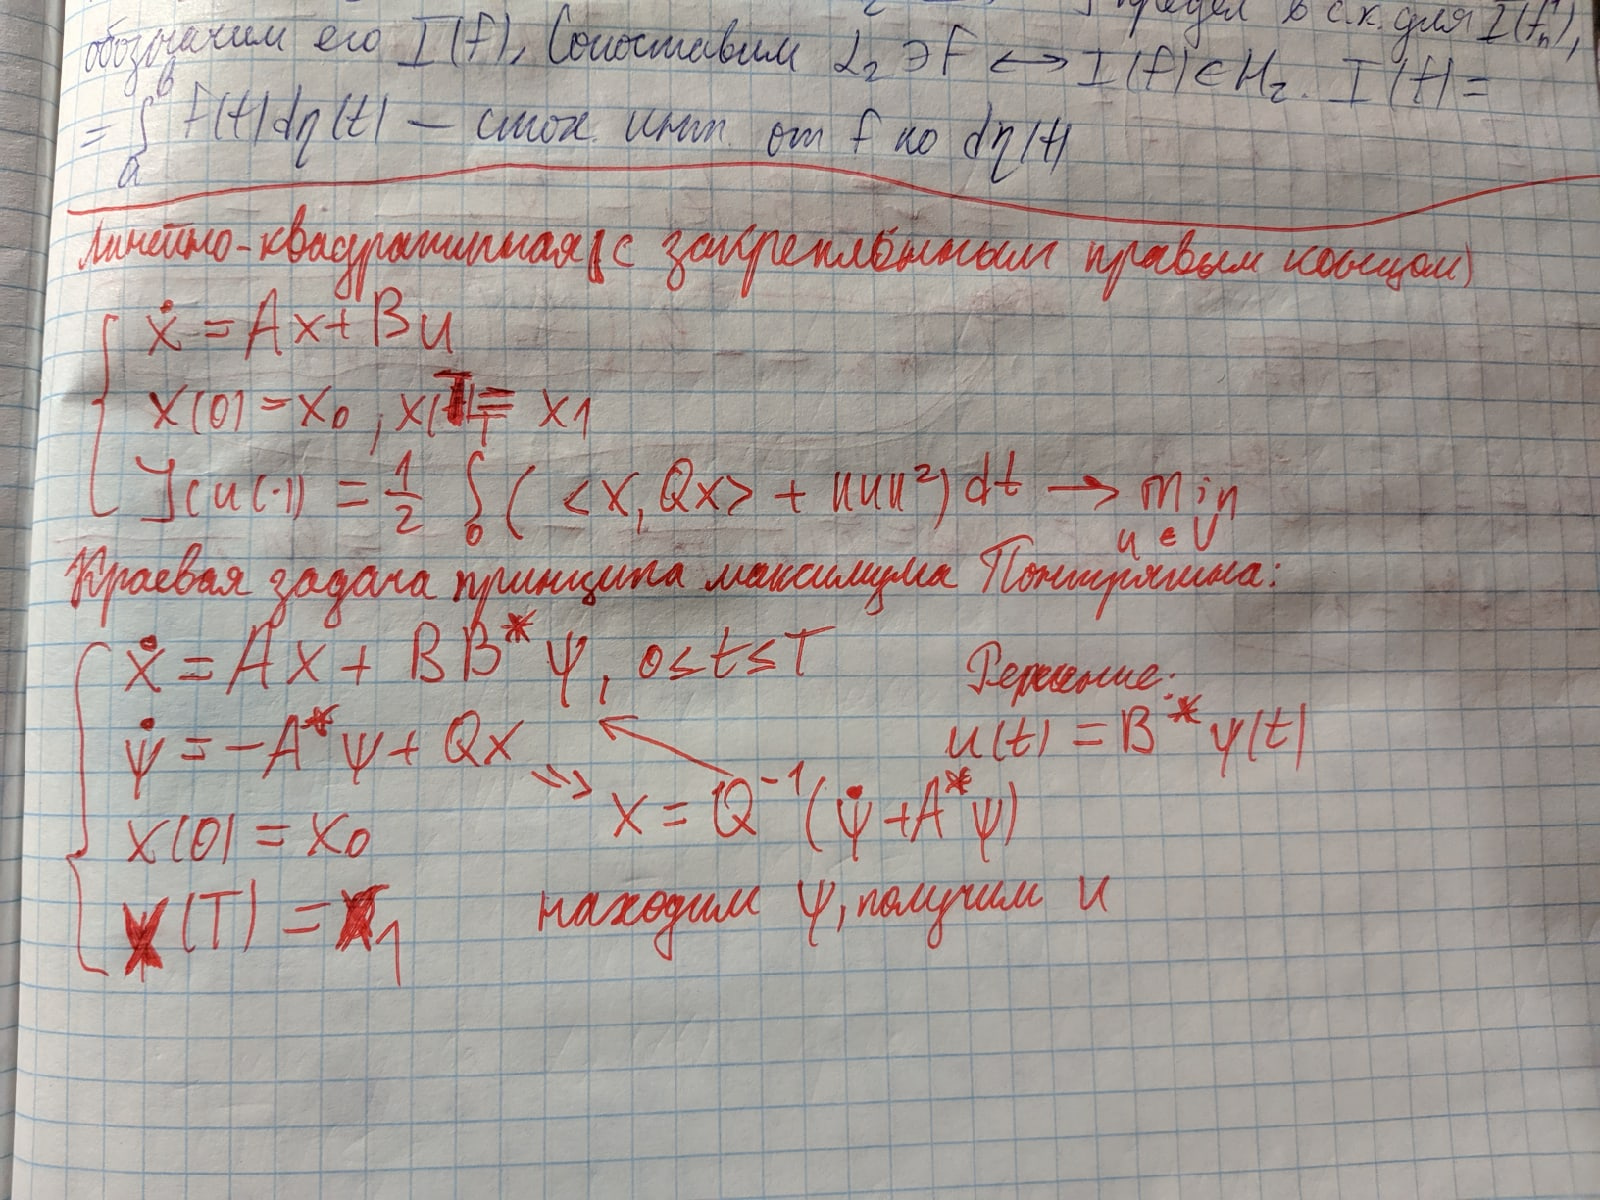 предел в с.к. для I(fₙ),
обозначим его I(f), Сопоставим L₂ ∋ f ↔ I(f) ∈ H₂. I(f) =
= ∫ₐᵇ f(t)dη(t) — стох. инт. от f по dη(t)
Линейно-квадратичная (с закреплённым правым концом)
ẋ = Ax + Bu
x(0) = x₀, x(T) = x₁
J(u(·)) = 1/2 ∫₀ᵀ ( <x, Qx> + ||u||²) dt → min
u ∈ U
Краевая задача принципа максимума Понтрягина:
ẋ = Ax + BB*ψ, 0 ≤ t ≤ T
Решение:
ψ̇ = -A*ψ + Qx
u(t) = B*ψ(t)
=> x = Q⁻¹(ψ̇ + A*ψ)
x(0) = x₀
x(T) = x₁
находим ψ, получим u